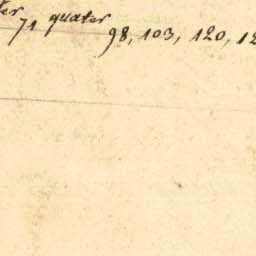 71 quater 98, 103, 120, 12